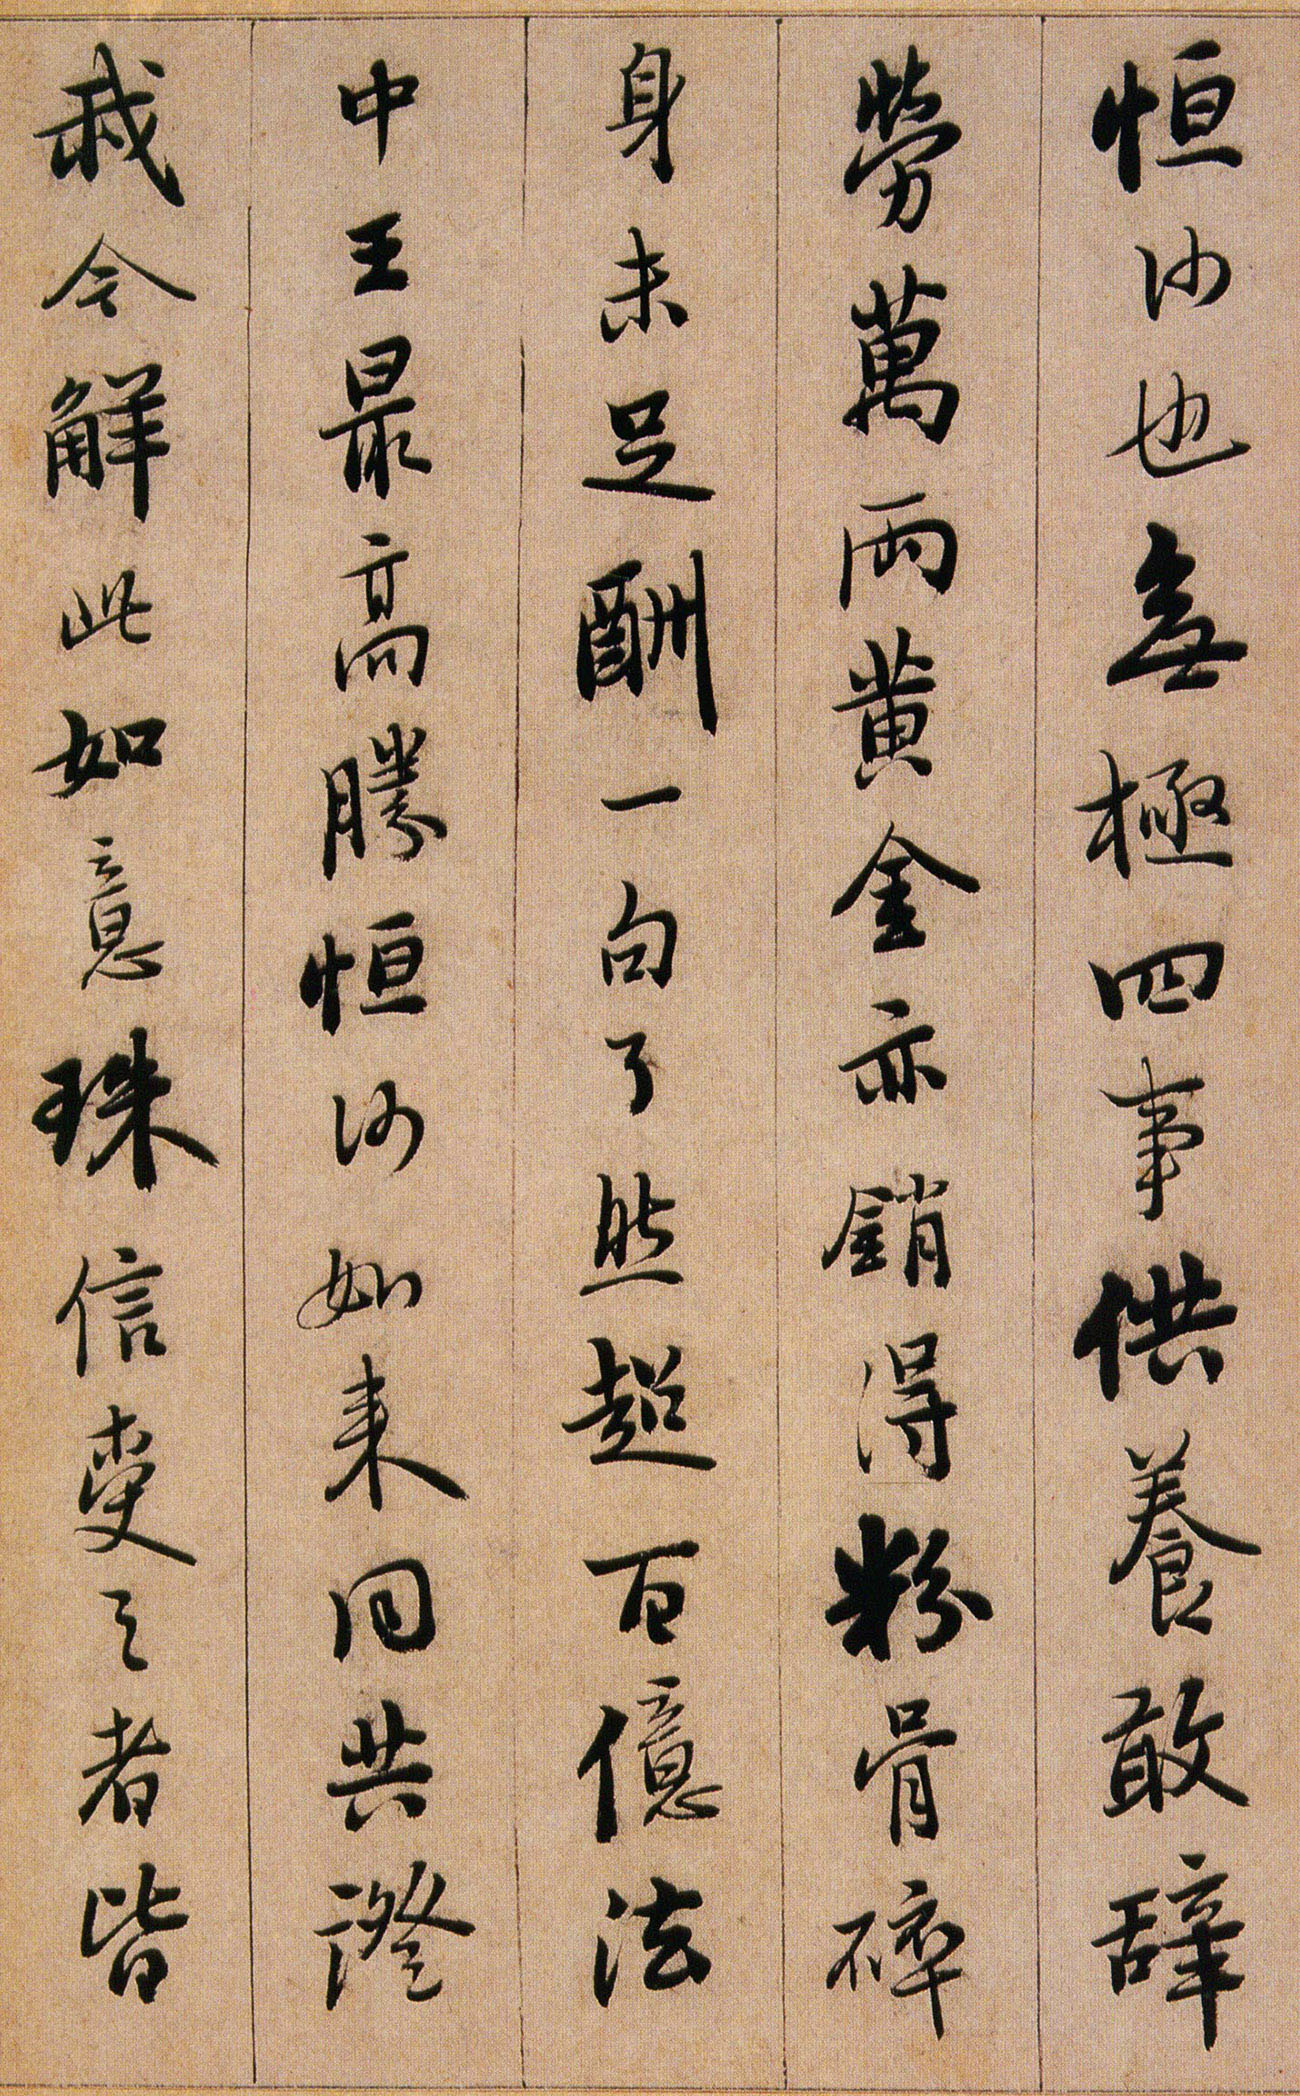 恒沙也無極四事供養敢辞
勞萬兩黄金亦銷得粉骨碎
身未足酬一句了然超百億法
中王最高勝恒沙如来同共證
我今解此如意珠信受之者皆